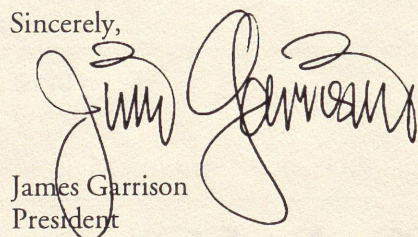 Sincerely,
Jim Garrison
James Garrison
President